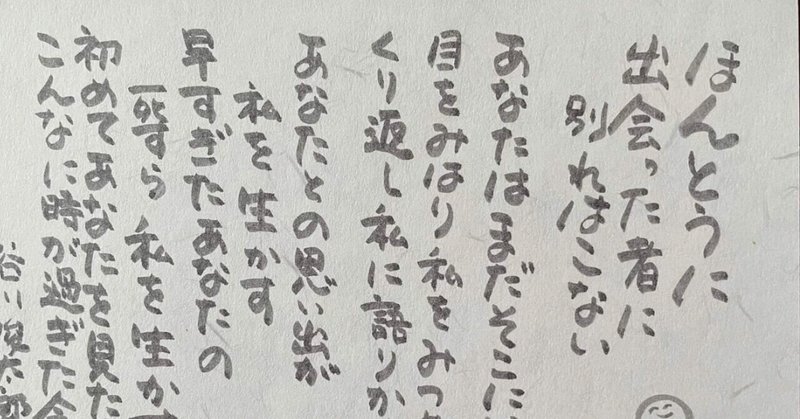 ほんとうに
出会った者に
別れはこない
あなたはまだそこに
目をみはり私をみつ
くり返し私に語りか
あなたとの思い出が
私を生かす
早すぎたあなたの
死すら私を生かす
初めてあなたを見た
こんなに時が過ぎた今
谷川俊太郎